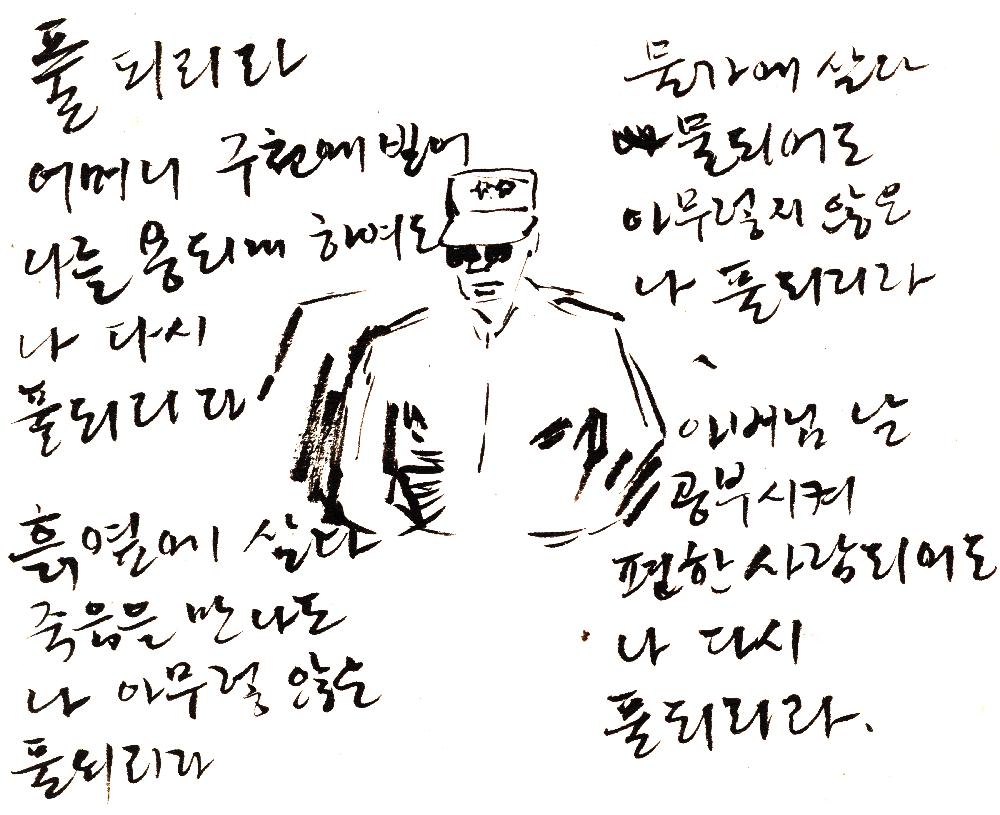 풀 되리라
어머니 구천에 빌어
나를 용되게 하여도
나 다시
풀되리라
흙옆에 살다
죽음을 만나도
나 아무렇 않은
풀되리라
물가에 살다
물되어도
아무렇지 않은
나 풀되리라
아버님 날
공부시켜
편한 사람되어도
나 다시
풀되리라.